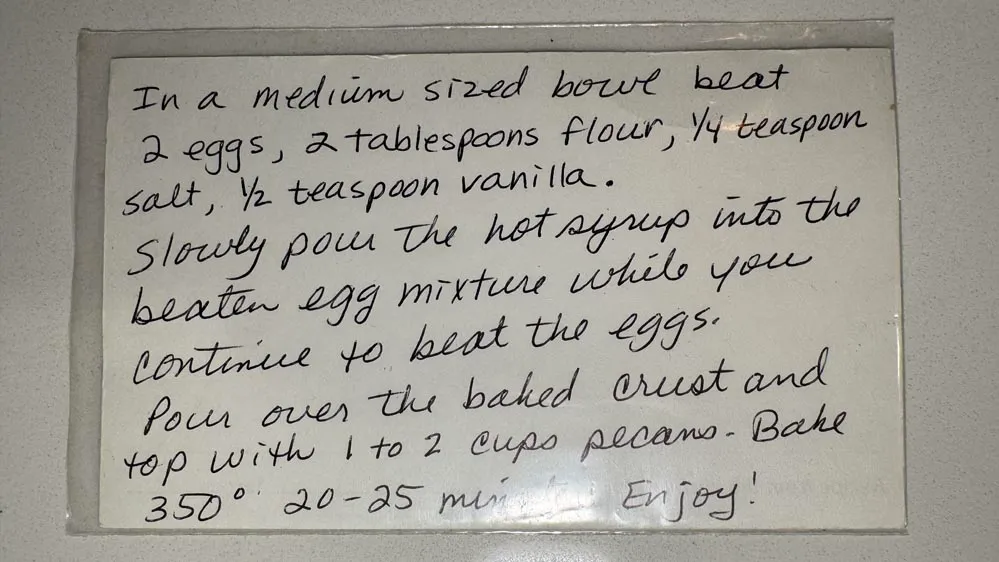 In a medium sized bowl beat
2 eggs, 2 tablespoons flour, 1/4 teaspoon
salt, 1/2 teaspoon vanilla.
Slowly pour the hot syrup into the
beaten egg mixture while you
continue to beat the eggs.
Pour over the baked crust and
top with 1 to 2 cups pecans. Bake
350° 20-25 Enjoy!